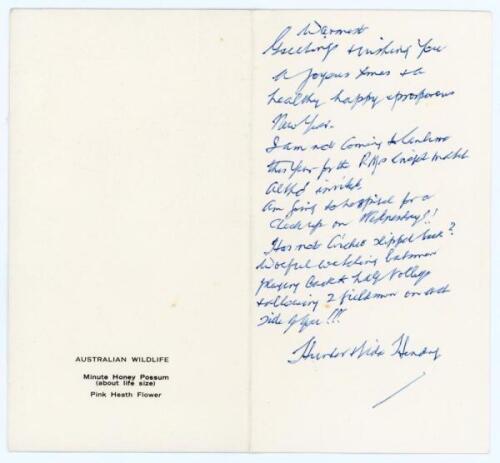 AUSTRALIAN WILDLIFE
Minute Honey Possum
(about life size)
Pink Heath Flower
Warmest
Greetings & wishing You
a joyous Xmas & a
healthy happy & prosperous
New Year.
I am not Coming to Canberra
this Year for the P.M's Cricket match
altho' invited.
Am going to hospital for a
check up on Wednesday!!
Has not Cricket slipped back?
Woeful watching batsmen
playing back to half volleys
& allowing 2 fieldsmen on each
side of you!!!
Hunter Hendry